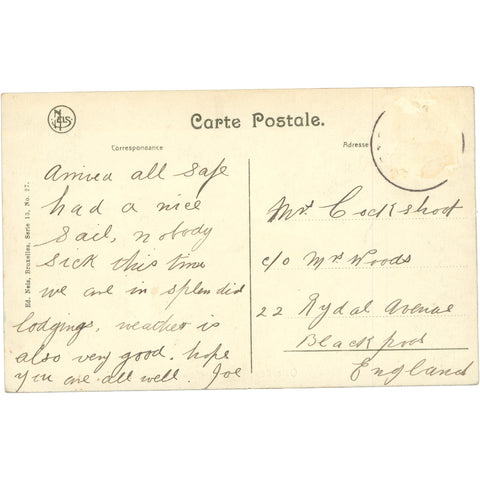 NELS
Carte Postale.
Correspondance
Adresse
Ed. Nels, Bruxelles, Serie 13, No. 27.
Arrived all safe
had a nice
sail, nobody
sick this time
we are in splendid
lodgings, weather is
also very good. hope
you are all well. Joe
Mr. Cockshoot
c/o Mrs Woods
22 Rydal Avenue
Blackpool
England